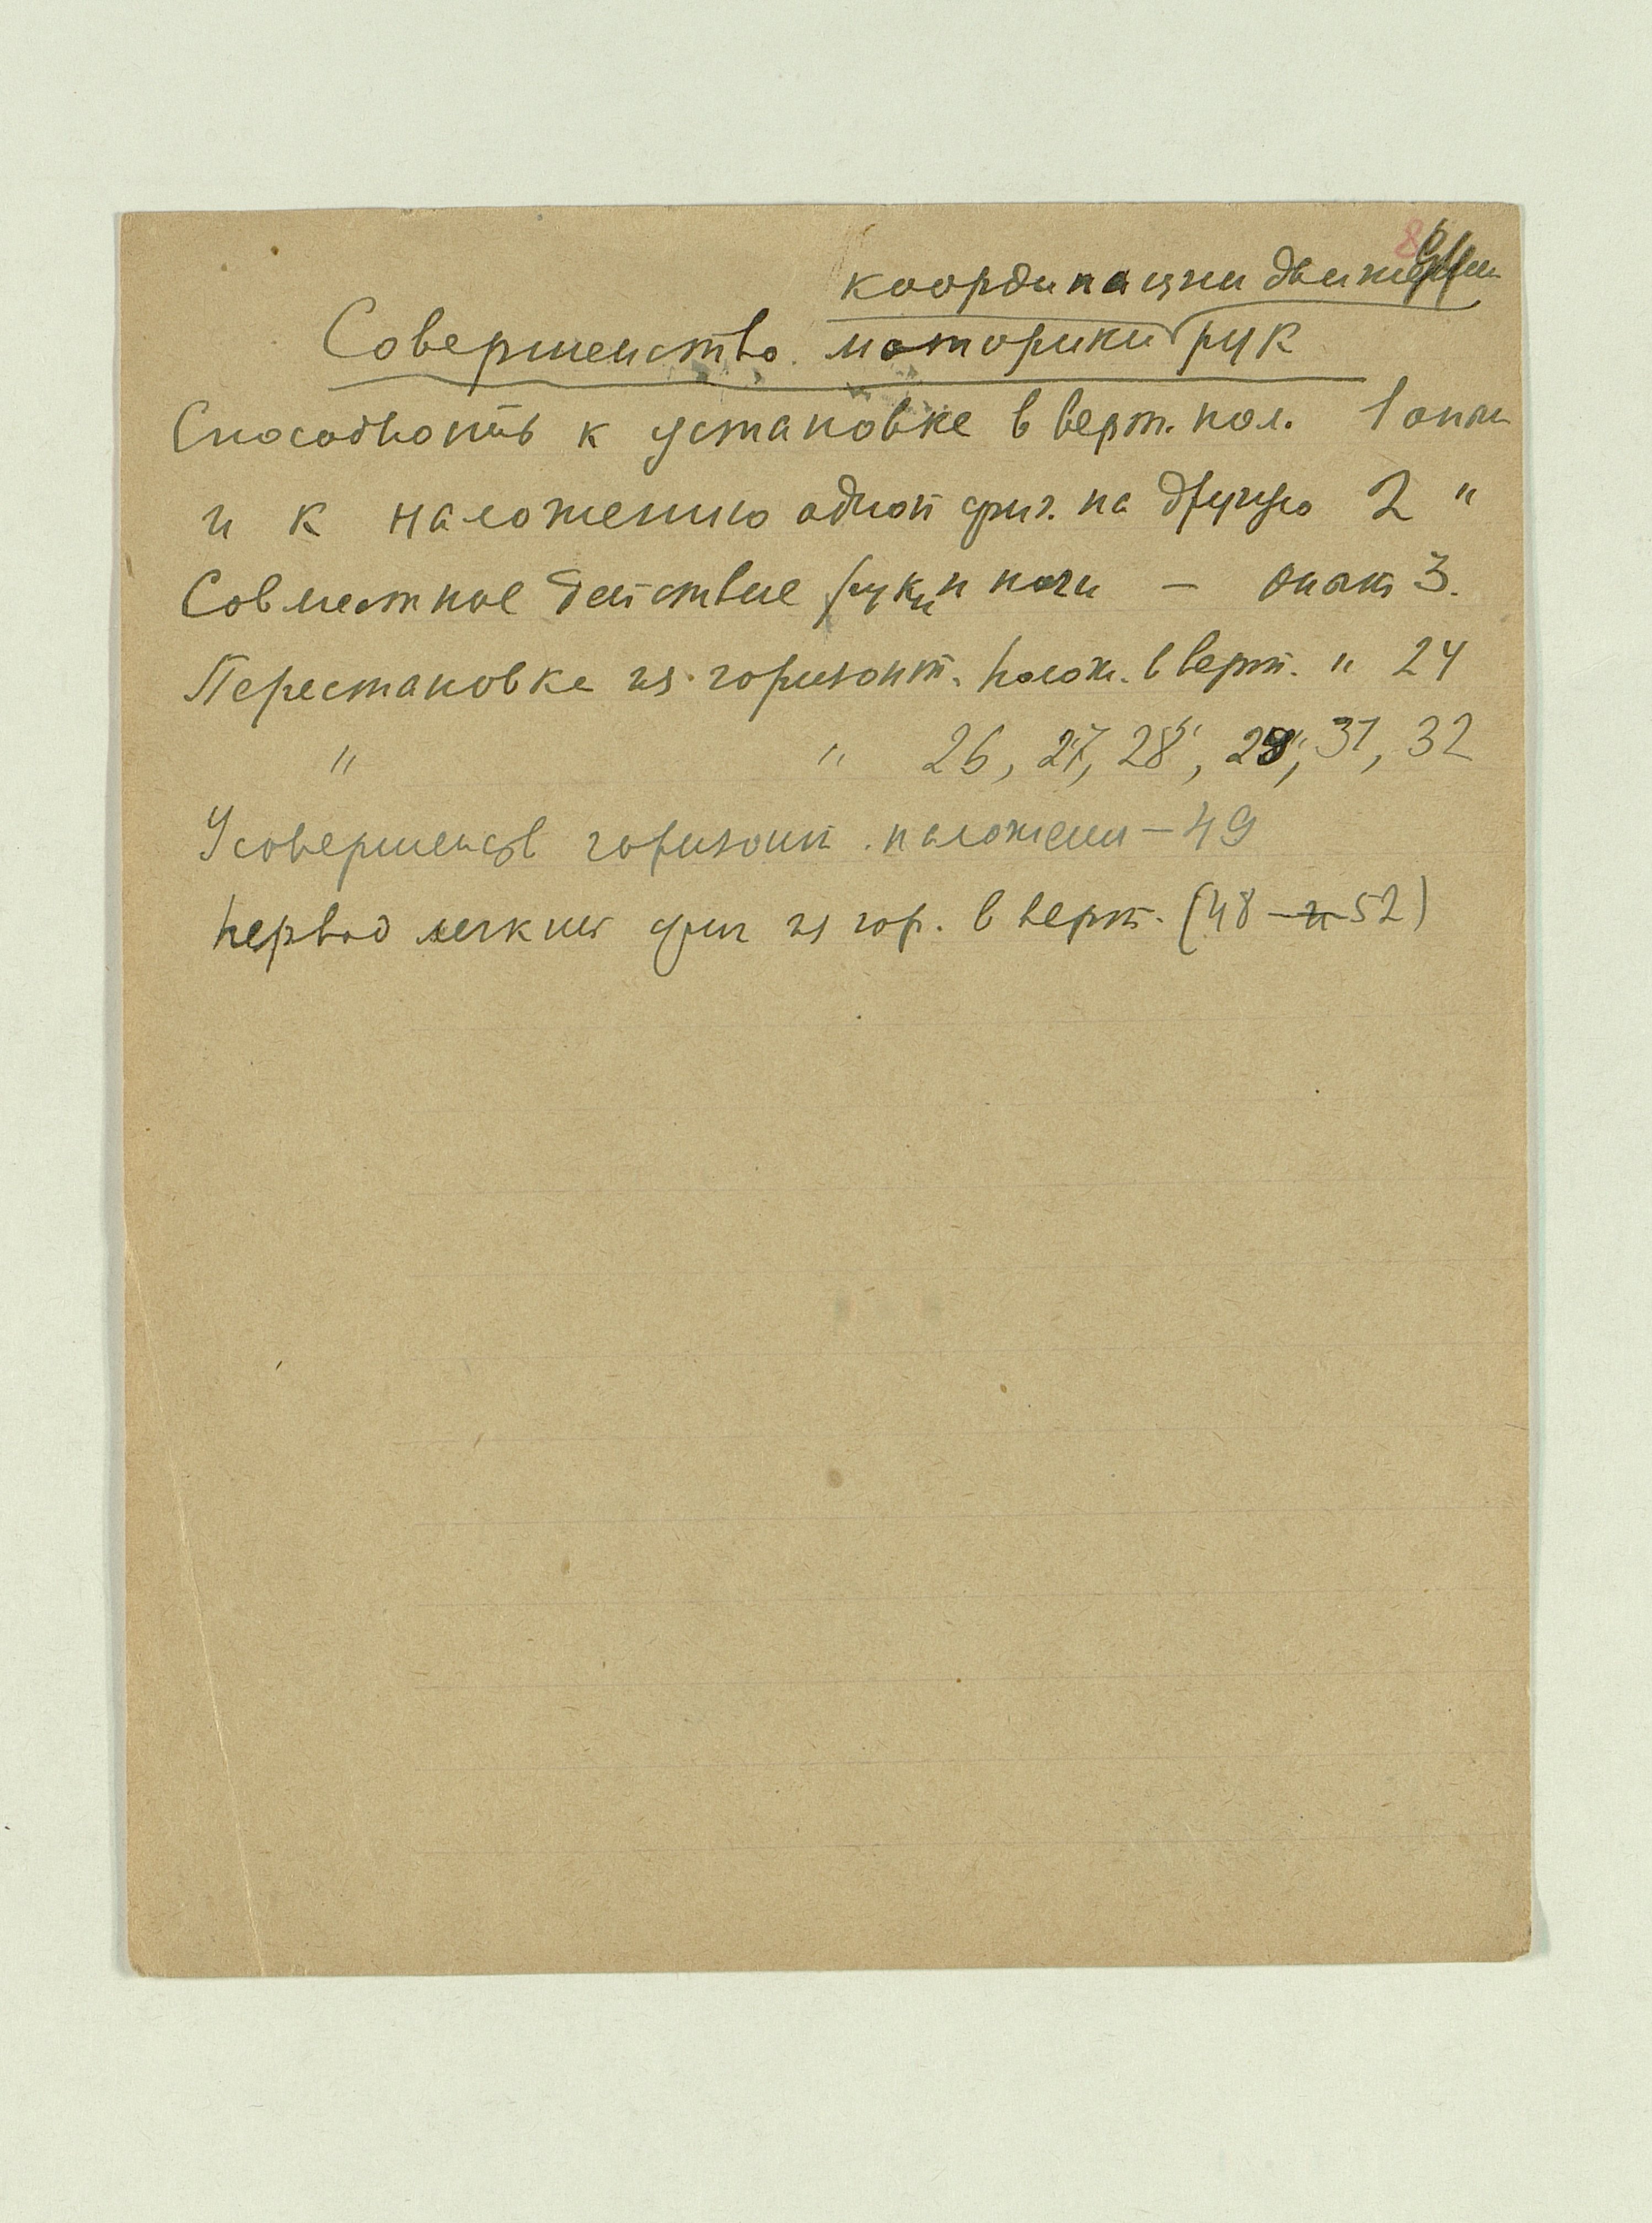 координации движении
Совершенство моторики рук
Способность к установке в верт. пол. 1 опыт
и к наложению одной фиг. на другую 2 "
Совместное действие руки и ноги — опыт 3.
Перестановке из горизонт. полож. в верт. " 24
" " 26, 27, 28, 29, 31, 32
Усовершенств горизонт. положения – 49
первод легких фиг из гор. в верт. (48 – и 52)